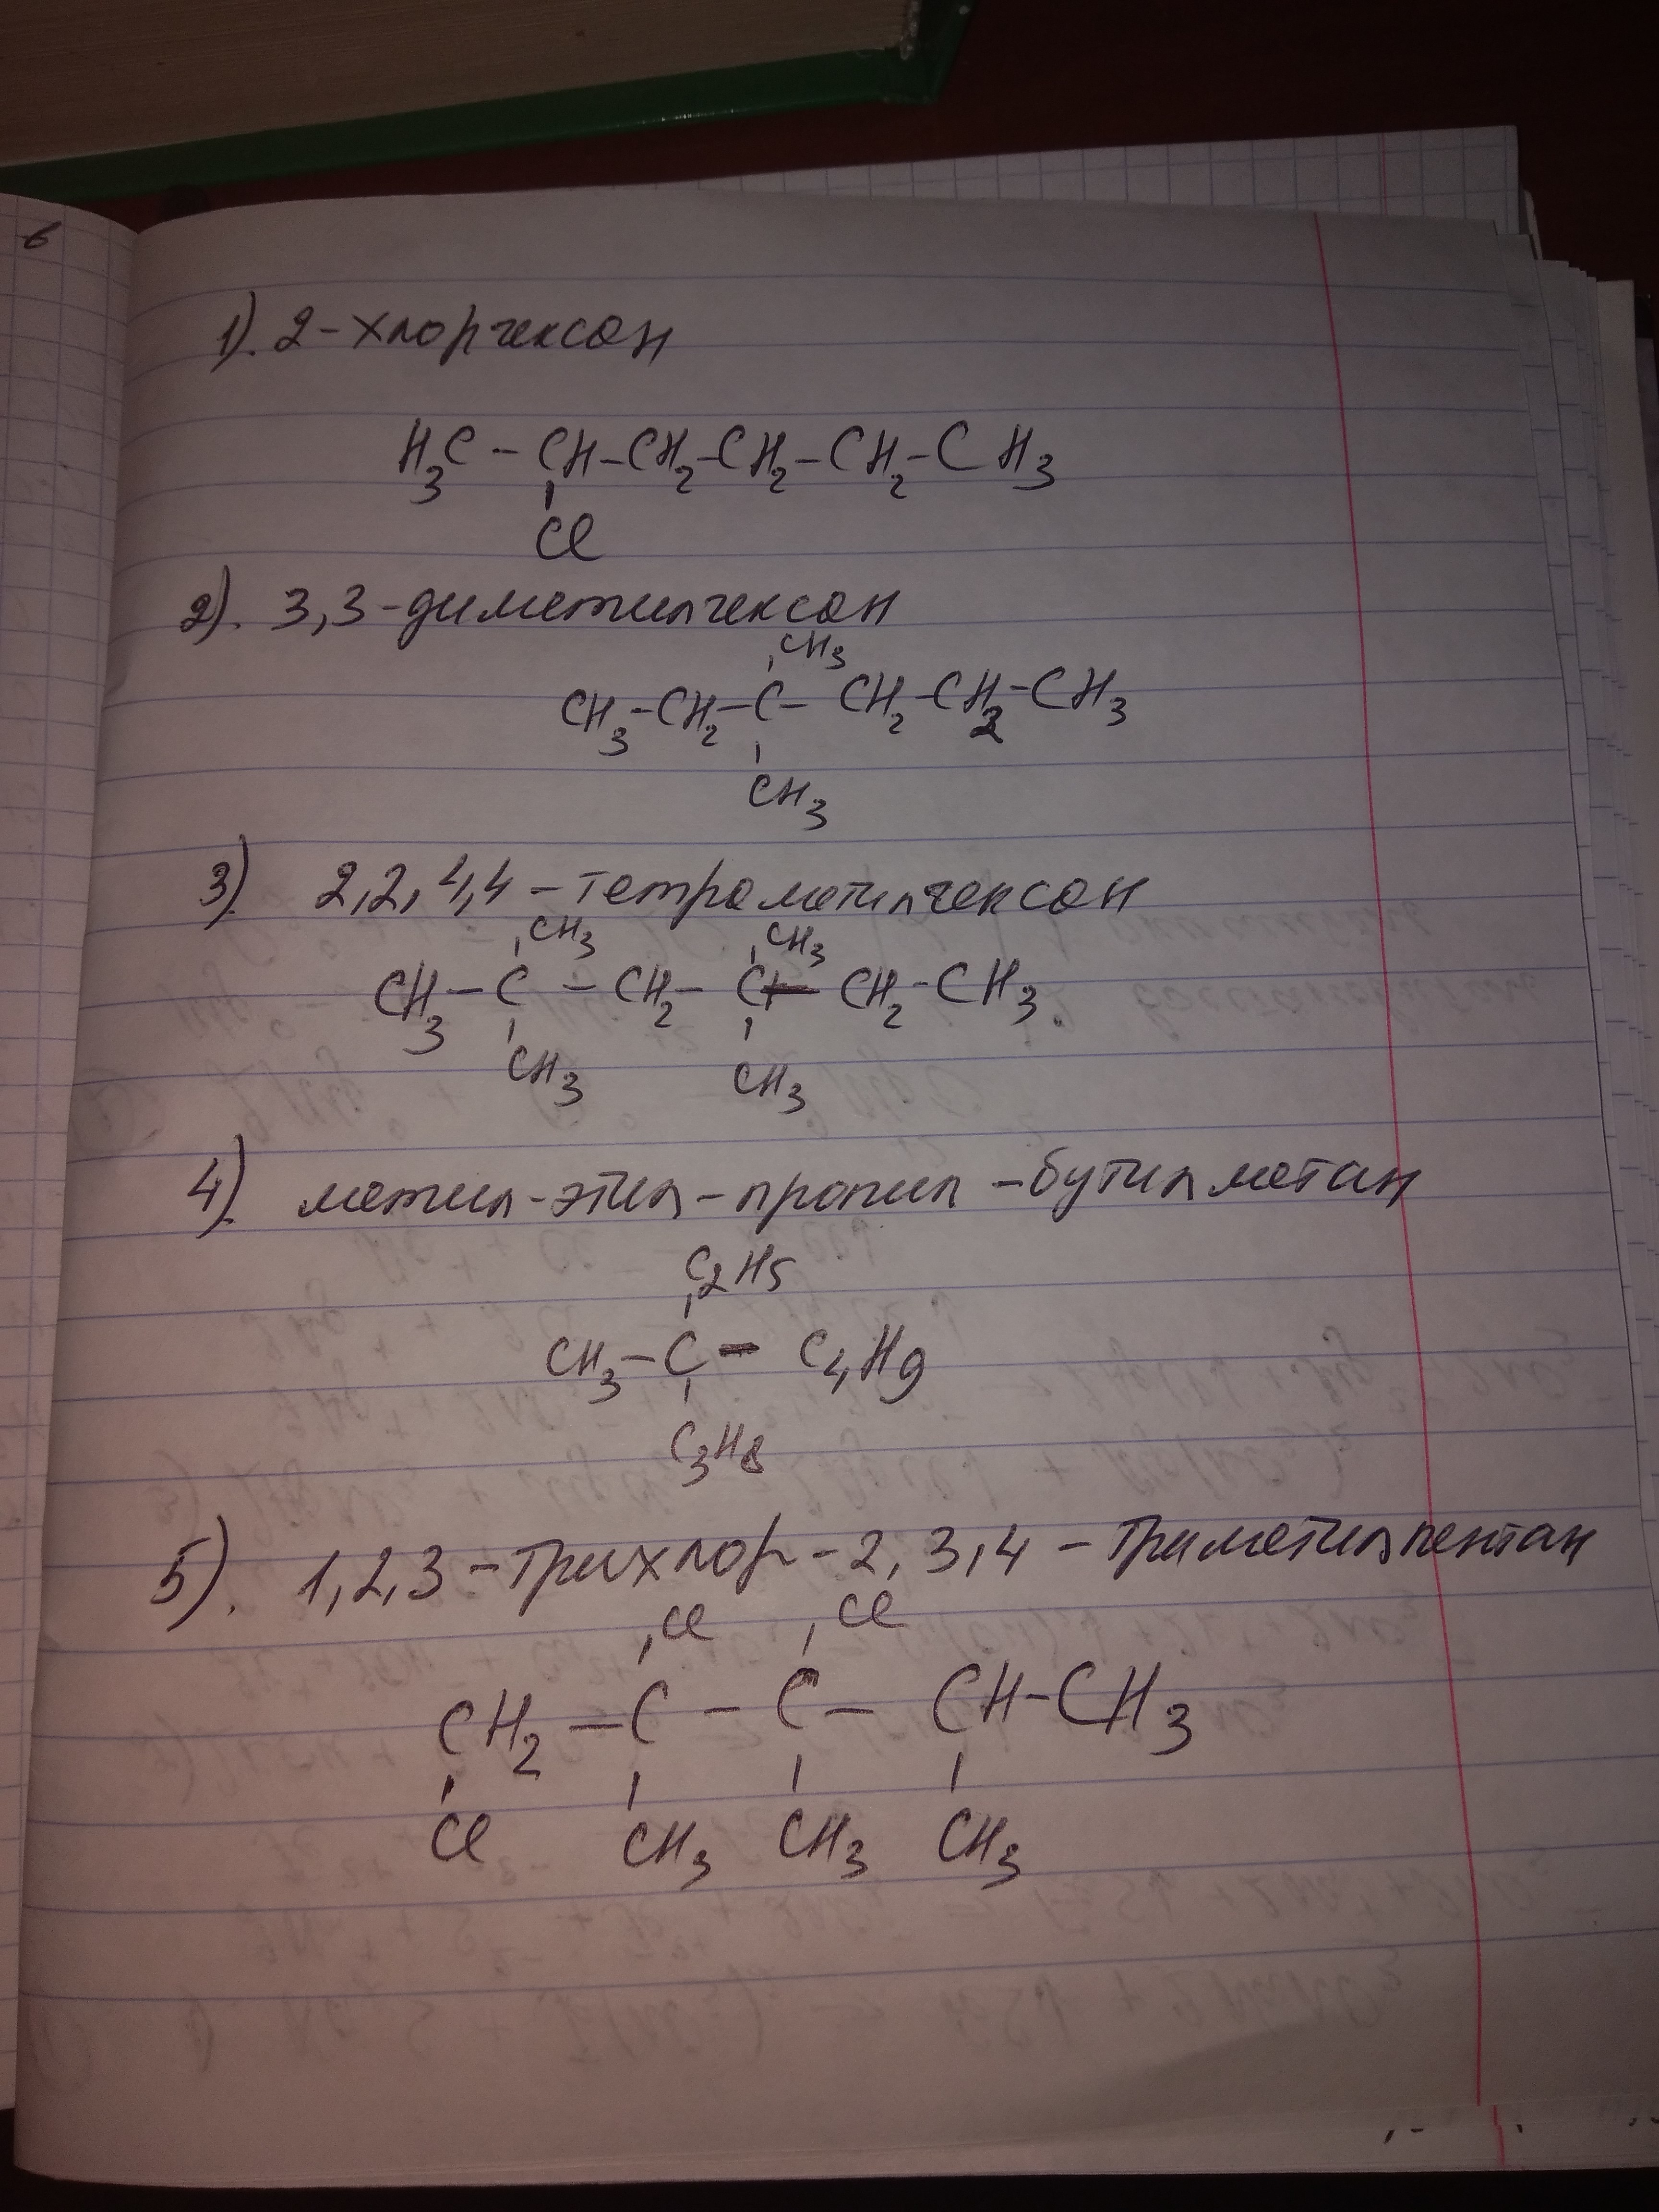 в
1). 2-хлоргексан
H3C - CH-CH2-CH2-CH2-CH3
Cl
2). 3,3-диметилгексан
CH3
CH3-CH2-C- CH2-CH2-CH3
CH3
3) 2,2,4,4-тетраметилгексан
CH3 CH3
CH3-C - CH2- C - CH2-CH3.
CH3 CH3
4). метил-этил-пропил-бутилметан
C2H5
CH3-C - C4H9
C3H8
5). 1,2,3-трихлор-2,3,4-триметилпентан
Cl Cl
CH2-C - C - CH-CH3
Cl CH3 CH3 CH3